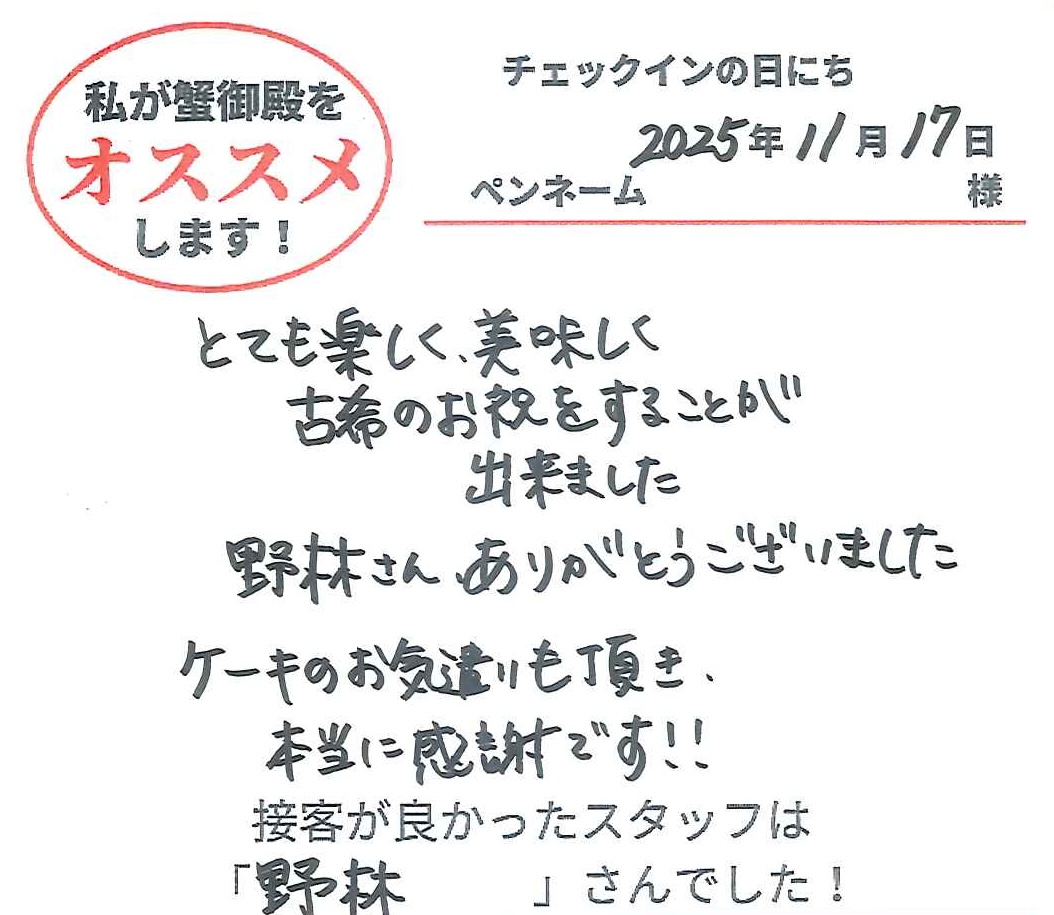 私が蟹御殿を
オススメ
します!
チェックインの日にち
2025年11月17日
ペンネーム 様
とても楽しく、美味しく
古希のお祝をすることが
出来ました
野林さん、ありがとうございました
ケーキのお気遣いも頂き、
本当に感謝です!!
接客が良かったスタッフは
「野林 」さんでした!